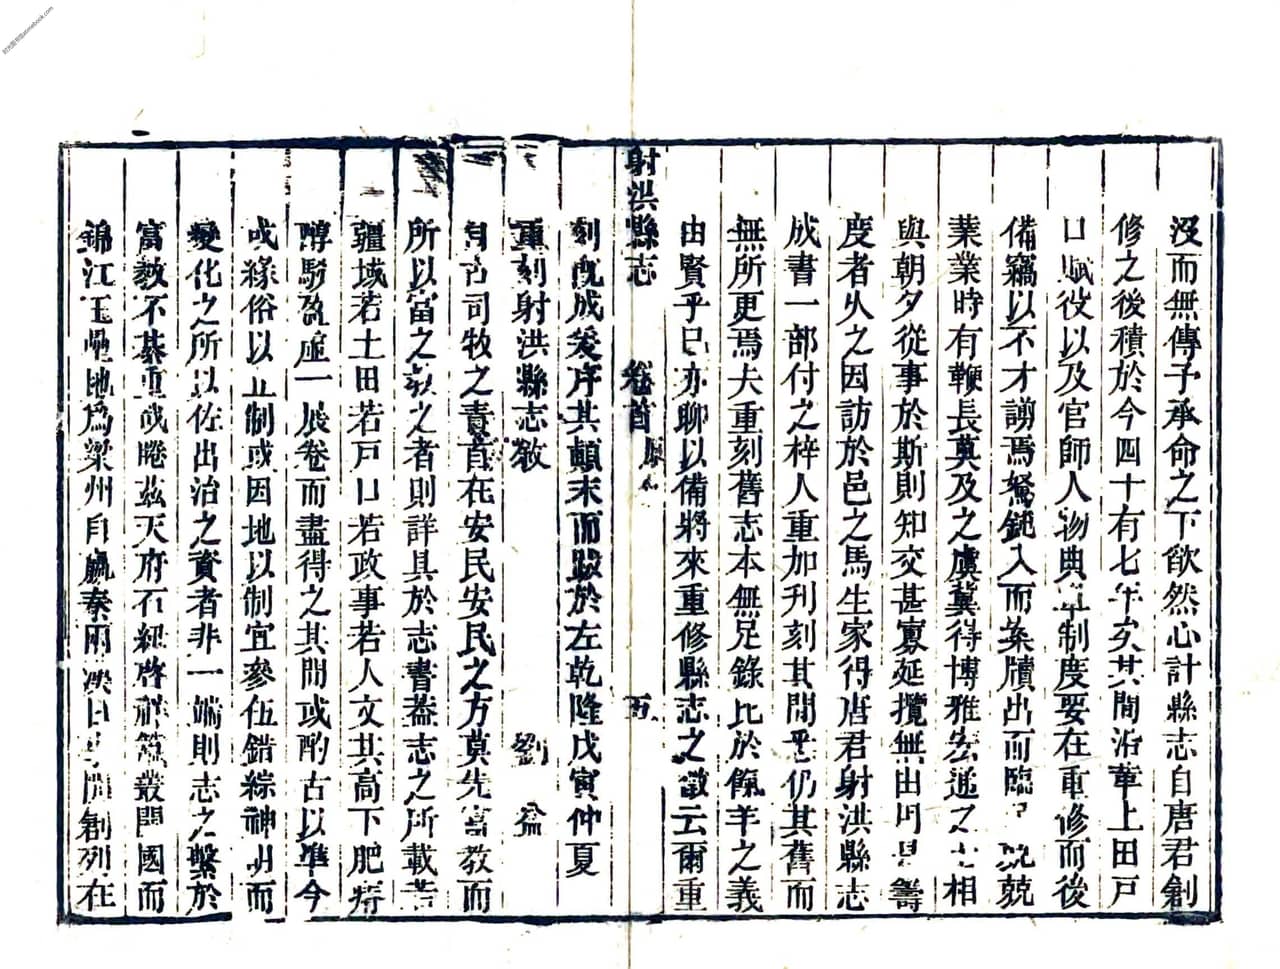 没而無傳予承命之下欿然心計縣志自唐君創
修之後積於今四十有七年矣其間沿革土田戸
口賦役以及官師人物典章制度要在重修而後
備竊以不才謭焉駑鈍入而案牘出而臨民兢兢
業業時有鞭長莫及之虞冀得博雅宏通之士相
與朝夕從事於斯則知交甚寡延攬無由因是籌
度者久之因訪於邑之馬生家得唐君射洪縣志
成書一部付之梓人重加刋刻其間悉仍其舊而
無所更焉夫重刻舊志本無足錄比於餼羊之義
由賢乎已亦聊以備將來重修縣志之徵云爾重
刻旣成爰序其顛末而跋於左乾隆戊寅仲夏
射洪縣志 卷首
重刻射洪縣志敘 劉 益
司牧之責首在安民安民之方莫先富教而
所以富之教之者則詳具於志書葢志之所載若
疆域若土田若戸口若政事若人文其高下肥瘠
醇駁盈虛一展卷而盡得之其間或酌古以準今
或緣俗以立制或因地以制宜參伍錯綜神明而
變化之所以佐出治之資者非一端則志之繫於
富教不綦重哉睠茲天府石紐啓祥蠶叢開國而
錦江玉壘地爲梁州自嬴秦兩漢 開創列在